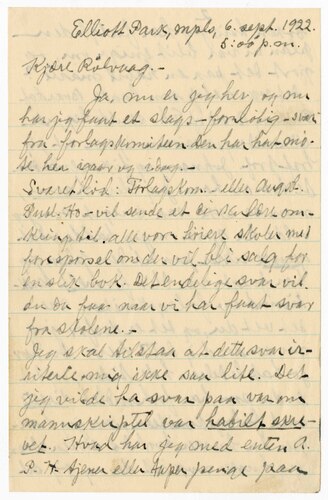 Elliott Park, Mpls, 6. sept. 1922.
5:00 p.m.
Kjære Rölvaag.-
Ja, nu er jeg her, og nu
har jeg faat et slags - foreløbig - svar
fra - forlagskomiteen. Den har hat mø-
te her igaar og idag.-
Svaret lød: Forlagskom. eller Augsb.
Pub. Ho - vil sende et cirkulære om-
kring til alle vore høiere skoler med
forespørsel om der vil bli salg for
en slik bok. Det endelige svar vil
du da faa naar vi har faat svar
fra skolene.-
Jeg skal tilstaa at dette svar ir-
riterte mig ikke saa lite. Det
jeg vilde ha svar paa var om
manuskriptet var habilt skre-
vet. Hvad har jeg med enten A.
P. H. tjener eller taper penge paa